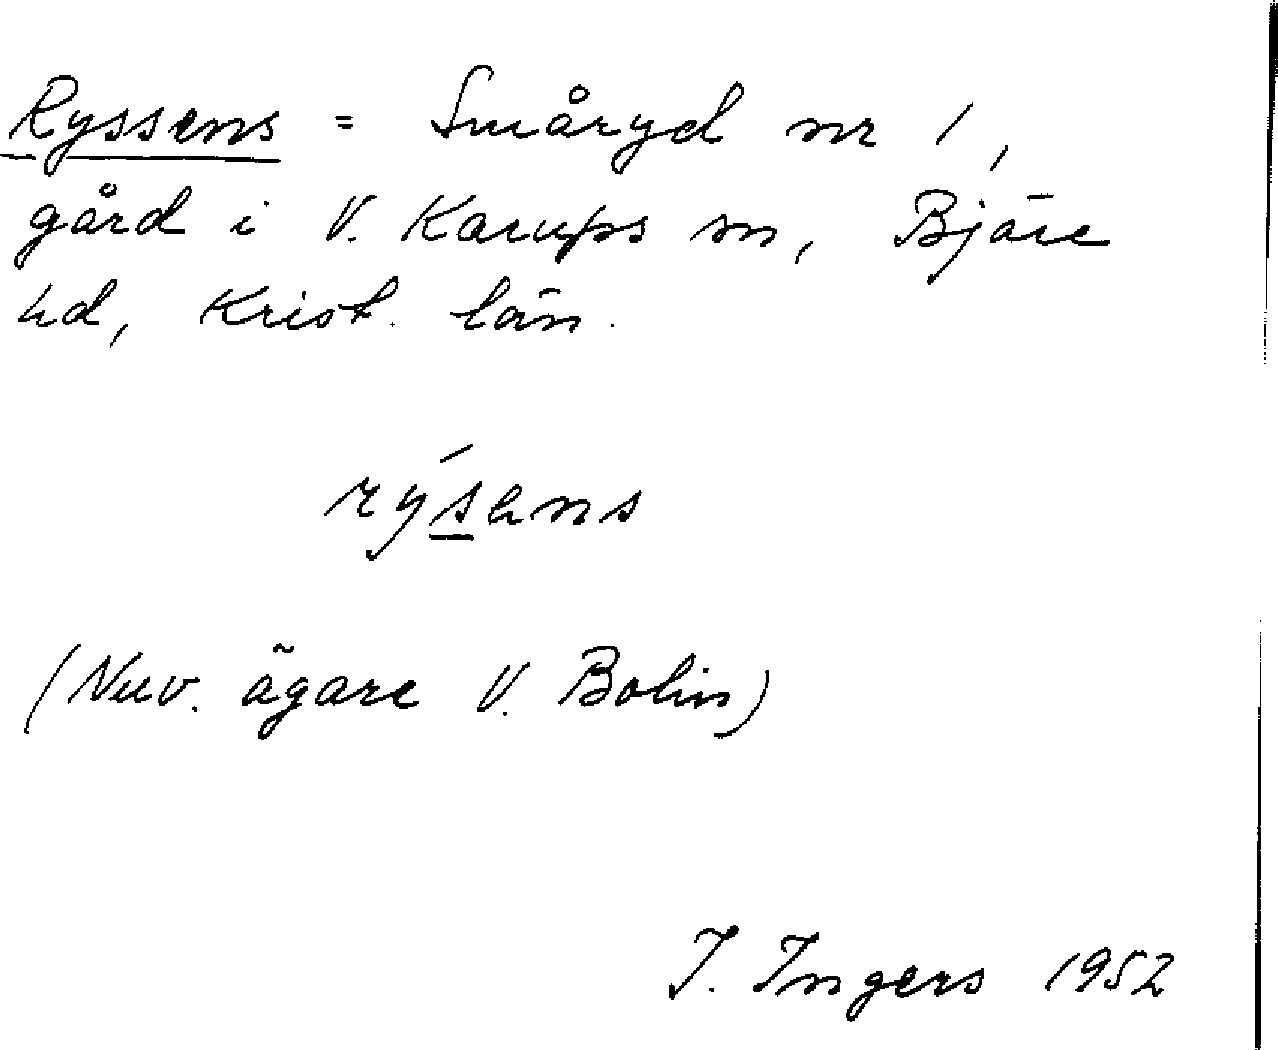 Ryssens = Småryd nr 1,
gård i V. Karups sn, Bjäre
hd, Krist. län.
rýsens
(Nuv. ägare V. Bolin)
I. Ingers 1952